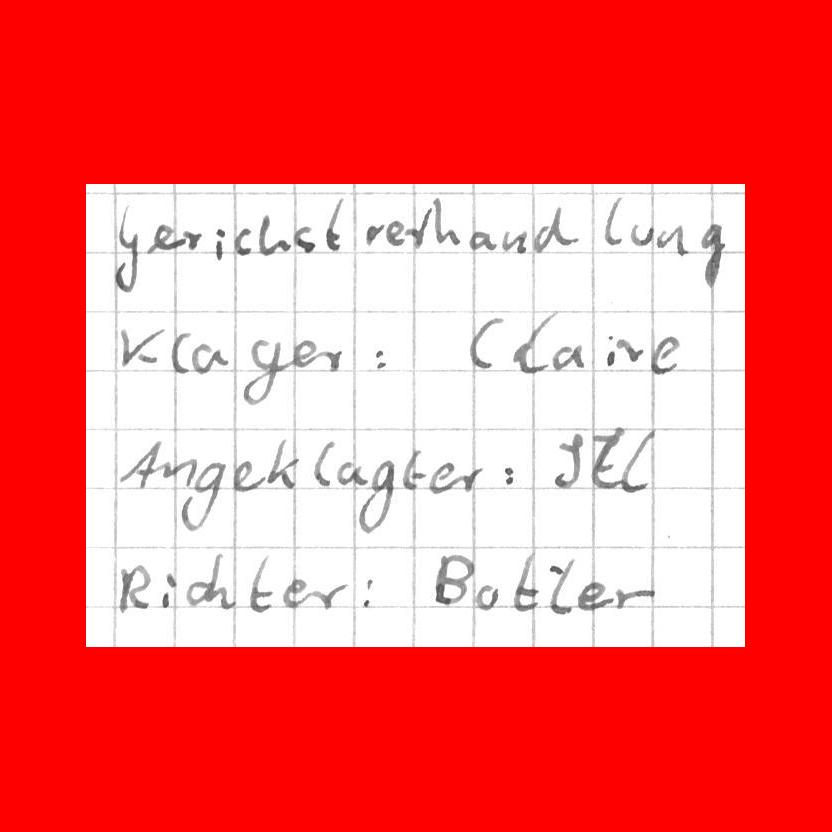 Gerichstverhandlung
Klager: Claire
Angeklagter: JEL
Richter: Botler